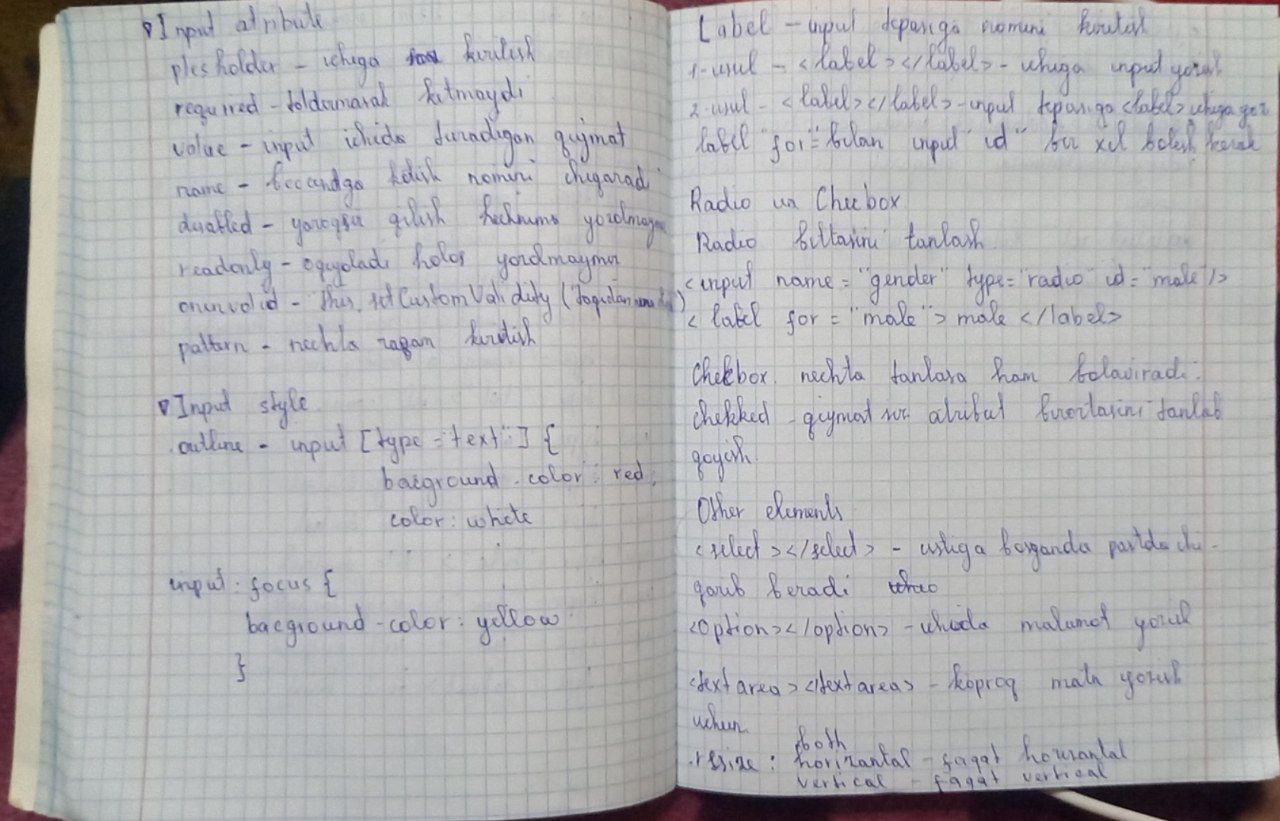 Input atribute
plesholder - ichiga kiritish
required - toldirmasak kitmaydi
value - input ichida turadigan qiymat
name - beccendga kelish nomini chiqaradi
disabled - yaroqsiz qilish hechnima yozolmaymiz
readonly - oqiyoladi holos yozolmaymiz
oninvalid - this.setCustomValidity (
pattern - nechta raqam kiritish
Input style
outline - input [type = "text"] {
bacground - color : red;
color : white
input : focus {
bacground - color : yellow
}
Label - input tepasiga nomini kiritish
1-usul - <label></label> - ichiga input yozish
2-usul - <label></label> - input tepasiga <label> ichiga yoz
label "for" = bilan input "id" bir xil bolish kerak
Radio va Checbox
Radio bittasini tanlash
<input name = "gender" type = "radio" id = "male" />
< label for = "male" > male </label>
Chekbox nechta tanlasa ham bolaviradi.
chekked - qiymat siz atribut birortasini tanlab
qoyish
Other elements
<select></select> - ustiga bosganda pastda chi-
qarib beradi
<option></option> - ichida malumot yozish
<textarea></textarea> - koproq matn yozish
uchun
both
resize : horizantal - faqat horizantal
vertical - faqat vertical